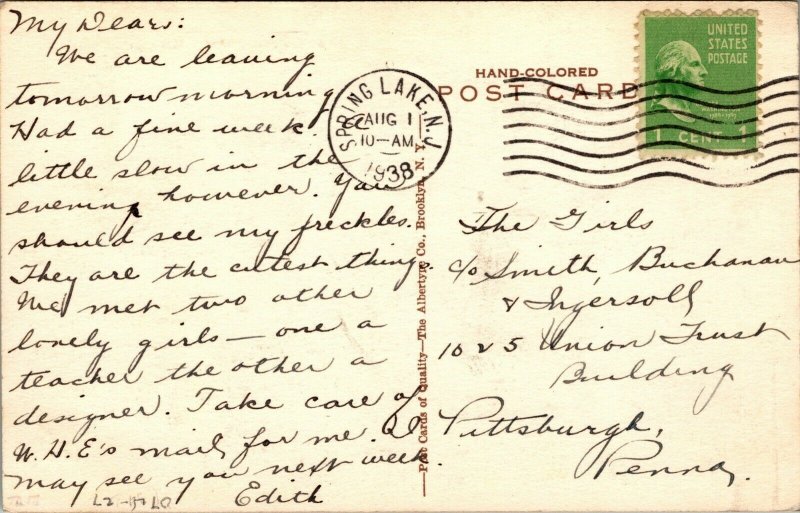 My Dears:
We are leaving
tomorrow morning
Had a fine week.
little slow in the
evening however. You
should see my freckles.
They are the cutest thing.
We met two other
lonely girls — one a
teacher the other a
designer. Take care of
W.H.E's mail for me. I
may see you next week.
Edith
HAND-COLORED
POST CARD
SPRING LAKE, N.J.
AUG 1
10-AM
1938
UNITED
STATES
POSTAGE
1 CENT 1
Post Cards of Quality—The Albertype Co., Brooklyn, N. Y.
The Girls
c/o Smith, Buchanan
& Ingersoll
1025 Union Trust
Building
Pittsburgh,
Penna.